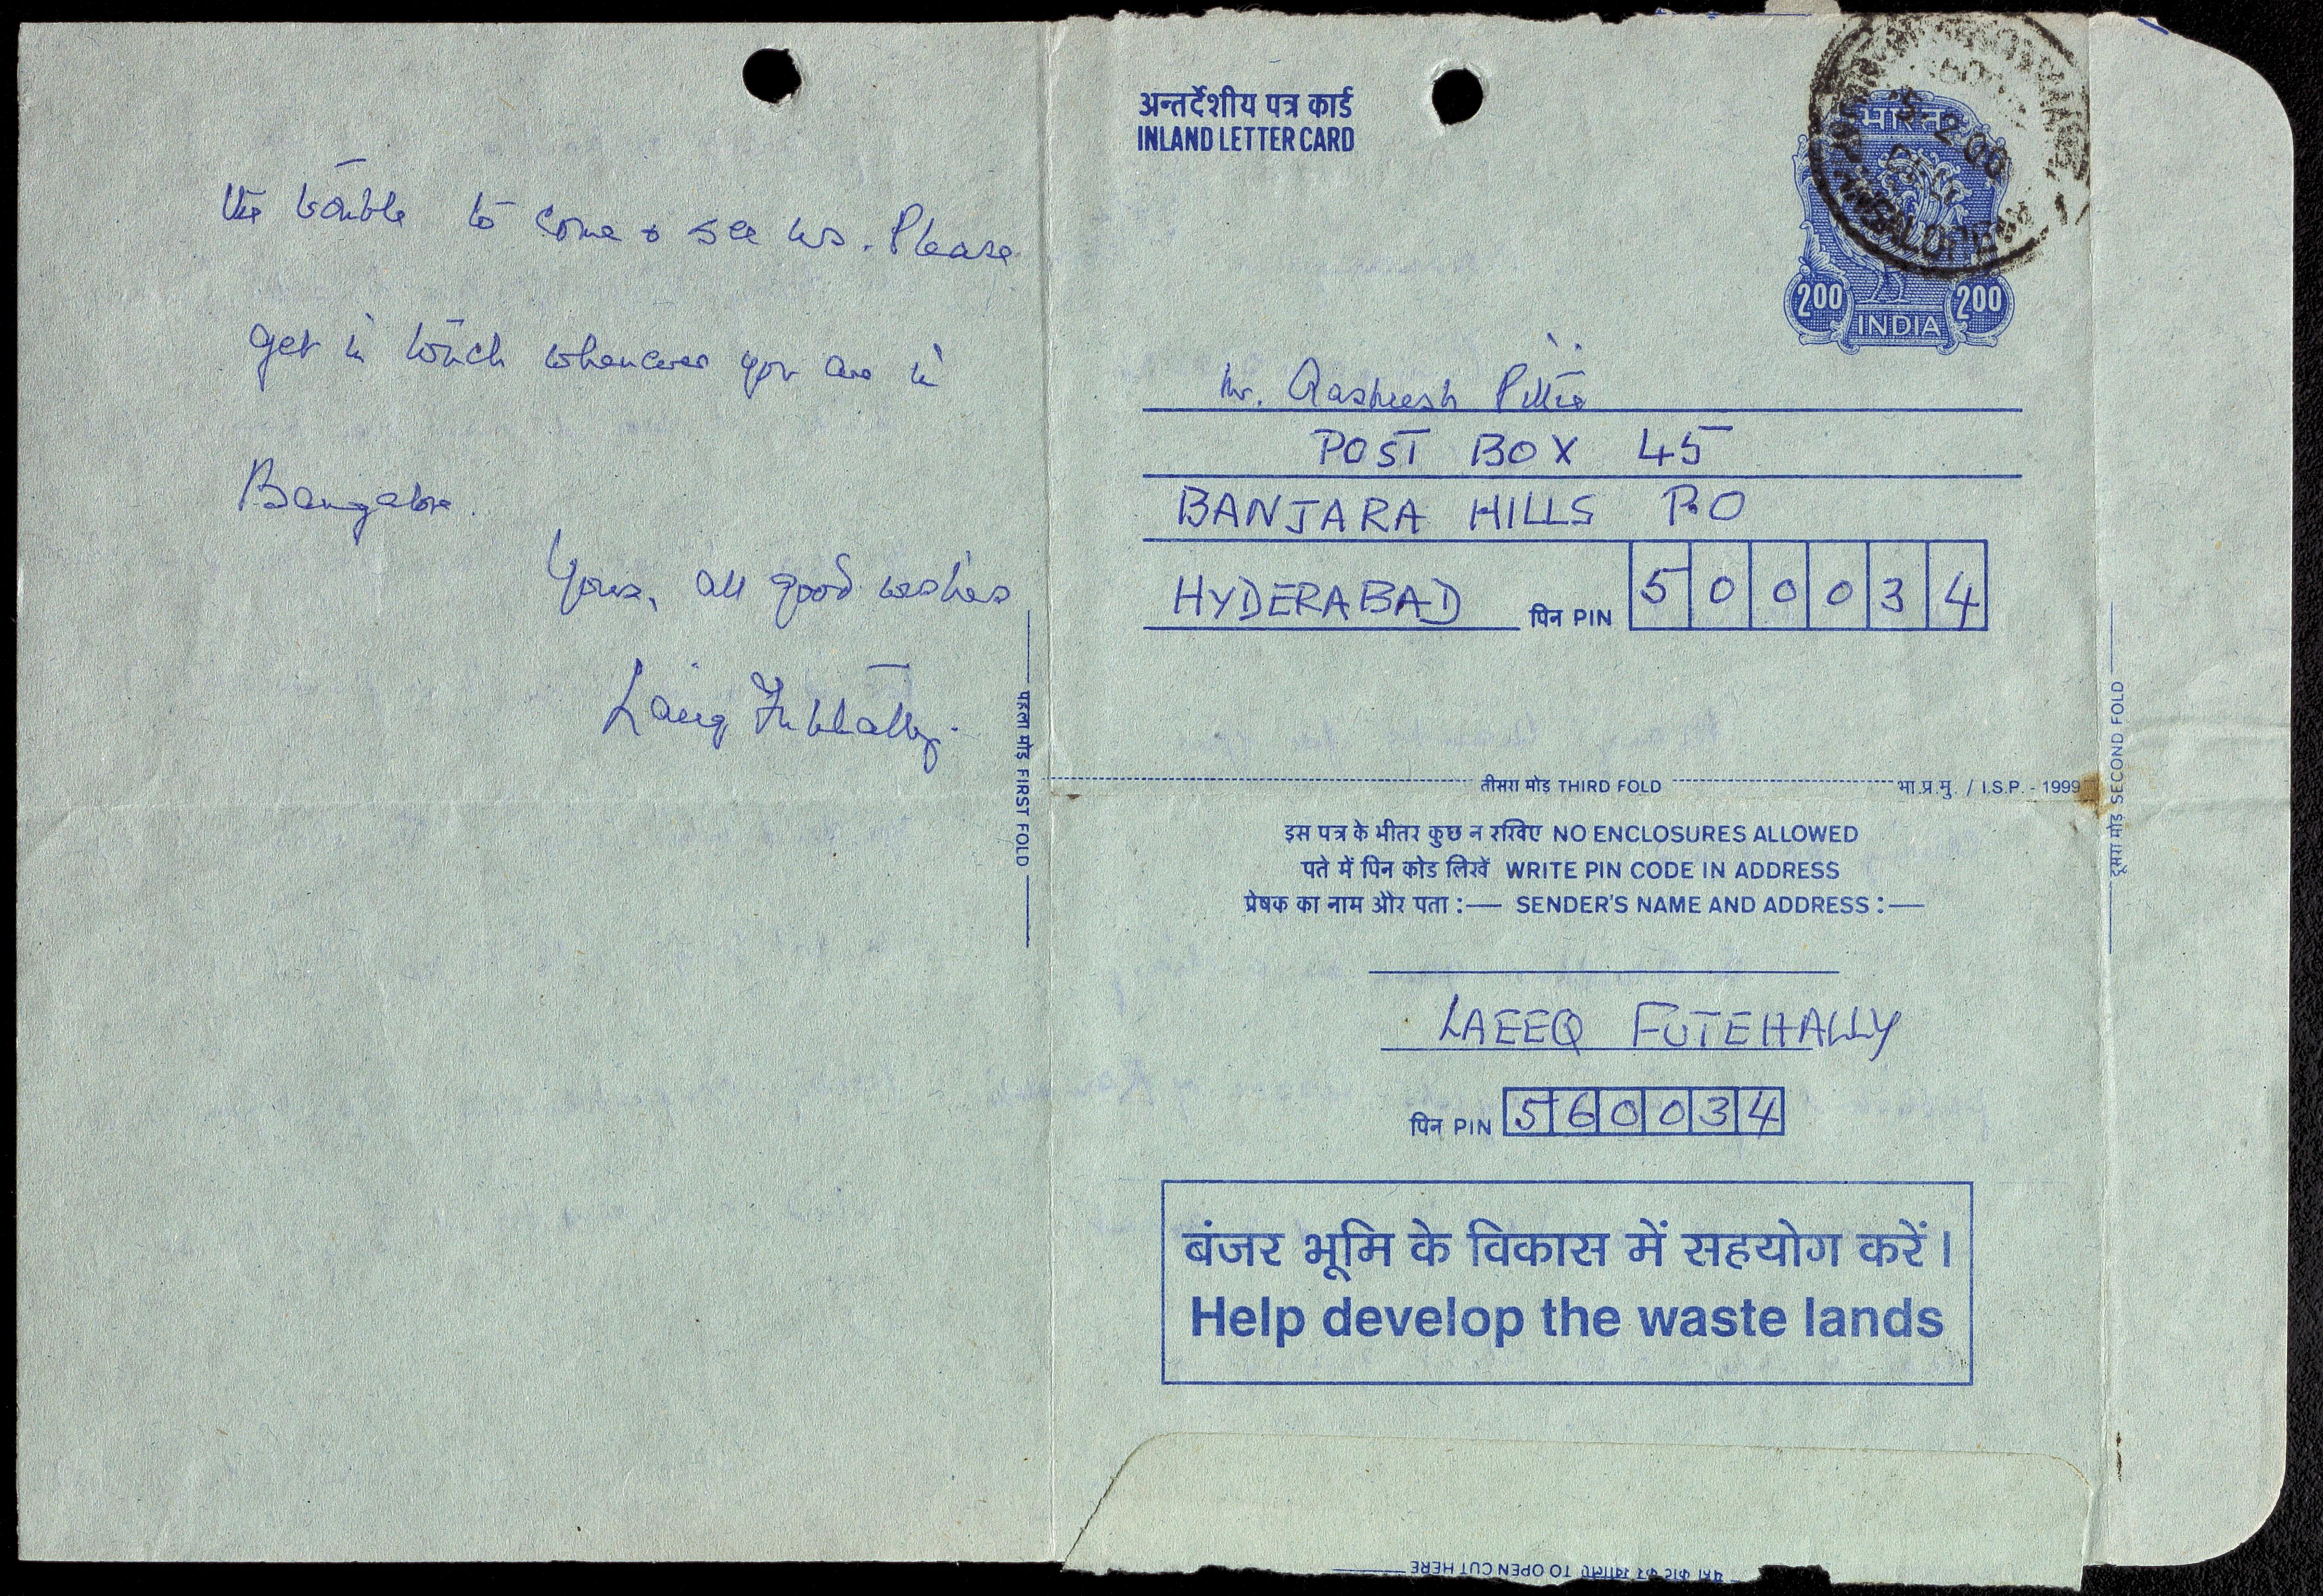 the trouble to come & see us. Please
get in touch whenever you are in
Bangalore.
Yours, all good wishes
Laeeq Futehally.
पहला मोड़ FIRST FOLD
अन्तर्देशीय पत्र कार्ड
INLAND LETTER CARD
भारत
200 200
INDIA
Mr. Aasheesh Pittie
POST BOX 45
BANJARA HILLS P.O
HYDERABAD पिन PIN 500034
तीसरा मोड़ THIRD FOLD भा.प्र.मु. / I.S.P. - 1999
दूसरा मोड़ SECOND FOLD
इस पत्र के भीतर कुछ न रखिए NO ENCLOSURES ALLOWED
पते में पिन कोड लिखें WRITE PIN CODE IN ADDRESS
प्रेषक का नाम और पता :— SENDER'S NAME AND ADDRESS :—
LAEEQ FUTEHALLY
पिन PIN 560034
बंजर भूमि के विकास में सहयोग करें।
Help develop the waste lands
TO OPEN CUT HERE